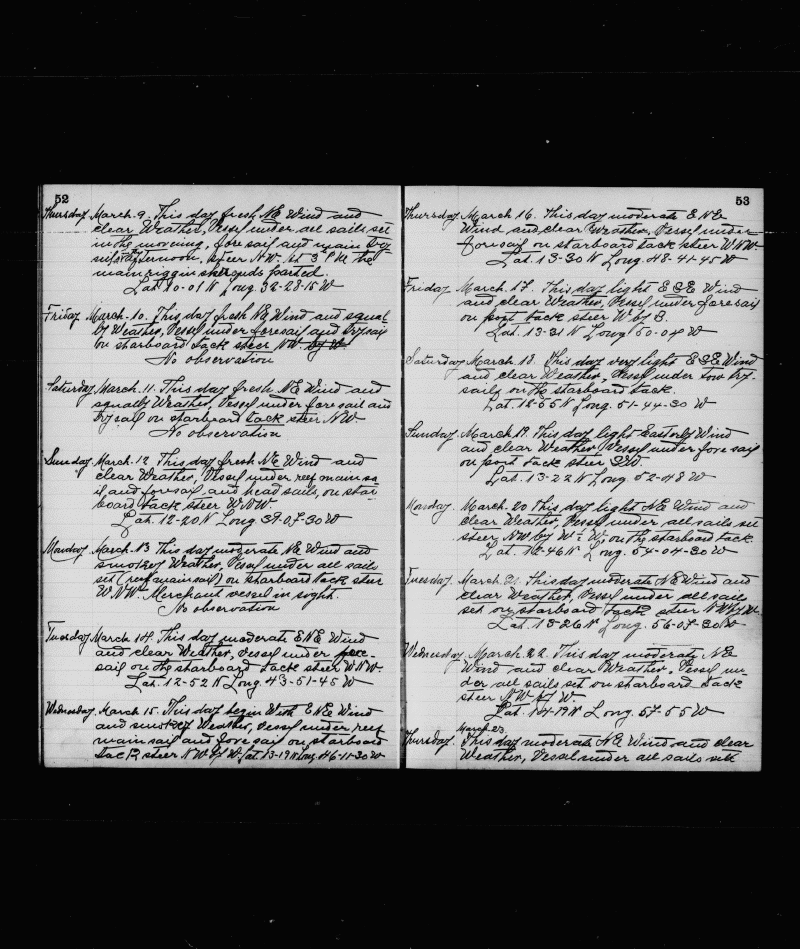 52
Thursday March. 9. This day fresh NE Wind and
clear Weather, Vessel under all sails set
in the morning, fore sail and main try
sail Afternoon, steer NW. at 3 P.M. the
main riggin shrouds parted.
Lat. 10-01 N Long. 32-28-15 W
Friday March. 10. This day fresh NE Wind and squal
ly Weather, Vessel under foresail and try sail
on starboard tack steer NW by W
No observation
Saturday March. 11. This day fresh NE Wind and
squally Weather, Vessel under fore sail and
try sail on starboard tack steer NW
No observation
Sunday March. 12 This day fresh NE Wind and
clear Weather, Vessel under reef main sa
il, and foresail, and head sails, on star
board tack steer WNW.
Lat. 12-20 N Long 37-07-30 W
Monday March. 13 This day moderate NE Wind and
smokey Weather, Vessel under all sails
set (reef mainsail) on starboard tack steer
WNW. Merchant vessel in sight.
No observation
Tuesday March 14. This day moderate ENE Wind
and clear Weather, Vessel under fore-
sail on the starboard tack steer WNW.
Lat. 12-52 N Long. 43-51-45 W
Wednesday March 15. This day begin With ENE Wind
and smokey Weather, Vessel under reef
main sail and fore sail on starboard
tack steer NW by W Lat. 13-19 N Long. 46-11-30 W
53
Thursday March 16. This day moderate ENE
Wind and clear Weather, Vessel under
foresail on starboard tack steer WNW.
Lat. 13-30 N Long. 48-41-45 W
Friday March. 17. This day light ESE Wind
and clear Weather, Vessel under fore sail
on port tack steer W by S.
Lat. 13-31 N Long. 50-04 W
Saturday March. 18. This day very light ESE Wind
and clear Weather, Vessel under tow try
sails on the starboard tack.
Lat. 13-55 N Long. 51-44-30 W
Sunday. March 19. This day light Easterly Wind
and clear Weather Vessel under fore sail
on port tack steer SW.
Lat. 13-22 N Long 52-48 W
Monday. March. 20 This day light NE Wind and
clear Weather, Vessel under all sails set
steer NW by W ½ W, on the starboard tack.
Lat. 12-46 N Long. 54-04-30 W
Tuesday. March. 21. This day moderate NE Wind and
clear Weather, Vessel under all sails
set on starboard tack steer NW by W.
Lat. 13-26 N Long. 56-07-30 W
Wednesday March. 22. This day moderate NE
Wind and clear Weather, Vessel un-
der all sails set on starboard tack
steer NW by W.
Lat. 14-19 N Long. 57-55 W
March 23.
Thursday. This day moderate NE Wind and clear
Weather, Vessel under all sails set